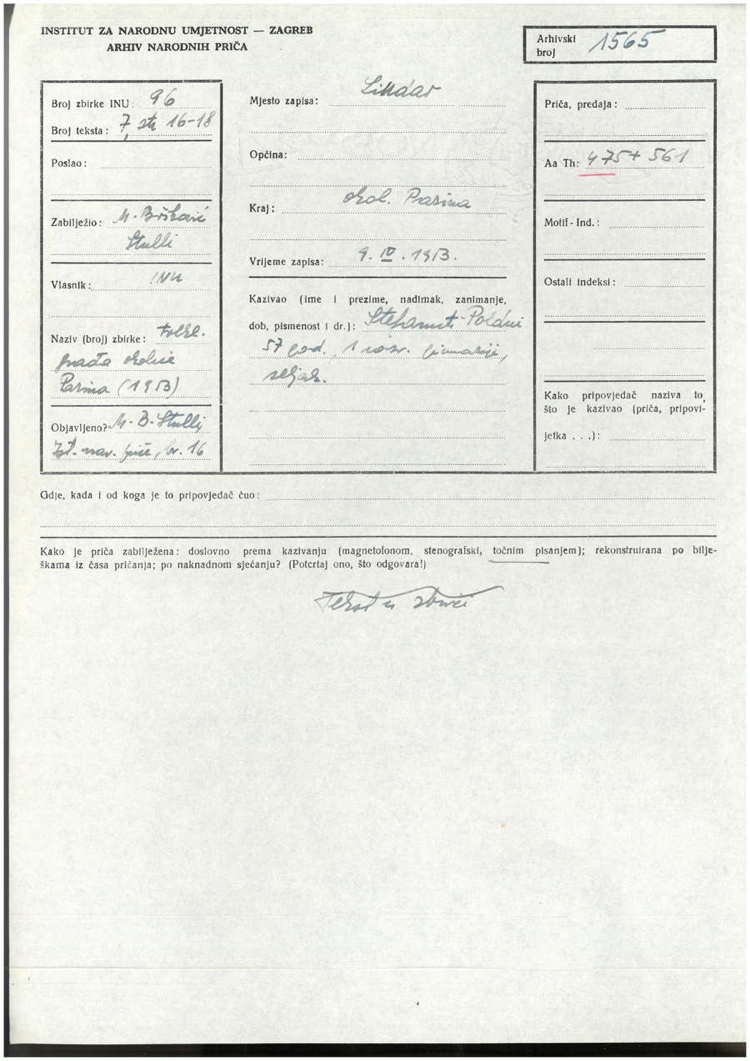 INSTITUT ZA NARODNU UMJETNOST — ZAGREB
ARHIV NARODNIH PRIČA
Arhivski
broj 1565
Broj zbirke INU: 96
Broj teksta: 7, str. 16-18
Poslao:
Zabilježio: M. Bošković
Stulli
Vlasnik: INU
Naziv (broj) zbirke: Folkl.
građa okolice
Pazina (1953)
Objavljeno? M. B. Stulli
Ist. nar. priče, br. 16
Mjesto zapisa: Lindar
Općina:
Kraj: okol. Pazina
Vrijeme zapisa: 9. IV. 1953.
Kazivao (ime i prezime, nadimak, zanimanje,
dob, pismenost i dr.):
57 god., 1 gimnazije,
seljak.
Priča, predaja:
Aa Th: 475 + 561
Motif - Ind.:
Ostali indeksi:
Kako pripovjedač naziva to,
što je kazivao (priča, pripovi-
jetka . . .):
Gdje, kada i od koga je to pripovjedač čuo:
Kako je priča zabilježena: doslovno prema kazivanju (magnetofonom, stenografski, točnim pisanjem); rekonstruirana po bilje-
škama iz časa pričanja; po naknadnom sjećanju? (Potcrtaj ono, što odgovara!)
Tekst u zbirci